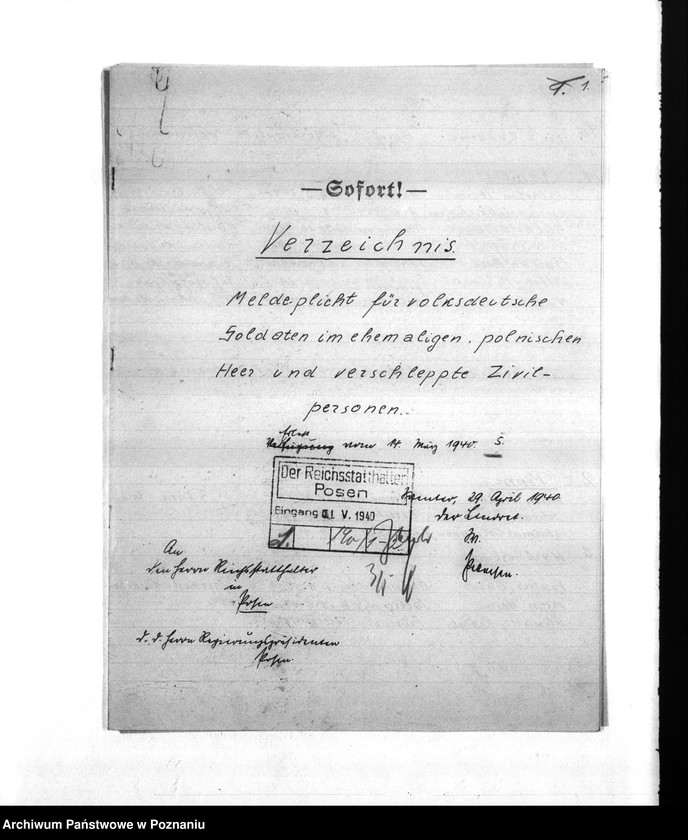 1.
—Sofort!—
Verzeichnis.
Meldeplicht für volksdeutsche
Soldaten im ehemaligen polnischen
Heer und verschleppte Zivil-
personen.
Erlass
Verfügung vom 14. März 1940. S.
Der Reichsstatthalter
Posen
Eingang 01. V. 1940
Samter, 29. April 1940.
Der Landrat.
An
den Herrn Reichsstatthalter
in
Posen
d. d. Herrn Regierungspräsidenten
Posen.
Archiwum Państwowe w Poznaniu